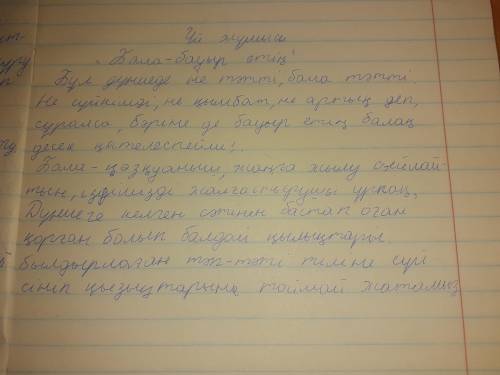 Үй жұмысы
"Бала-бауыр етің"
Бұл дүниеде не тәтті, бала тәтті.
Не сүйкімді, не қымбат, не артық деп,
сұралса, бәріне де бауыр етің балаң
десек қателеспейміз.
Бала - көзқуаныш, жанға жылу сыйлай-
тын, ғұмырымызды жалғастырушы ұрпақ.
Дүниеге келген сәтінен бастап оған
қорған болып балдай қылықтары
былдырлаған тәп-тәтті тіліне сүй
сініп қызықтарына тоймай жатамыз